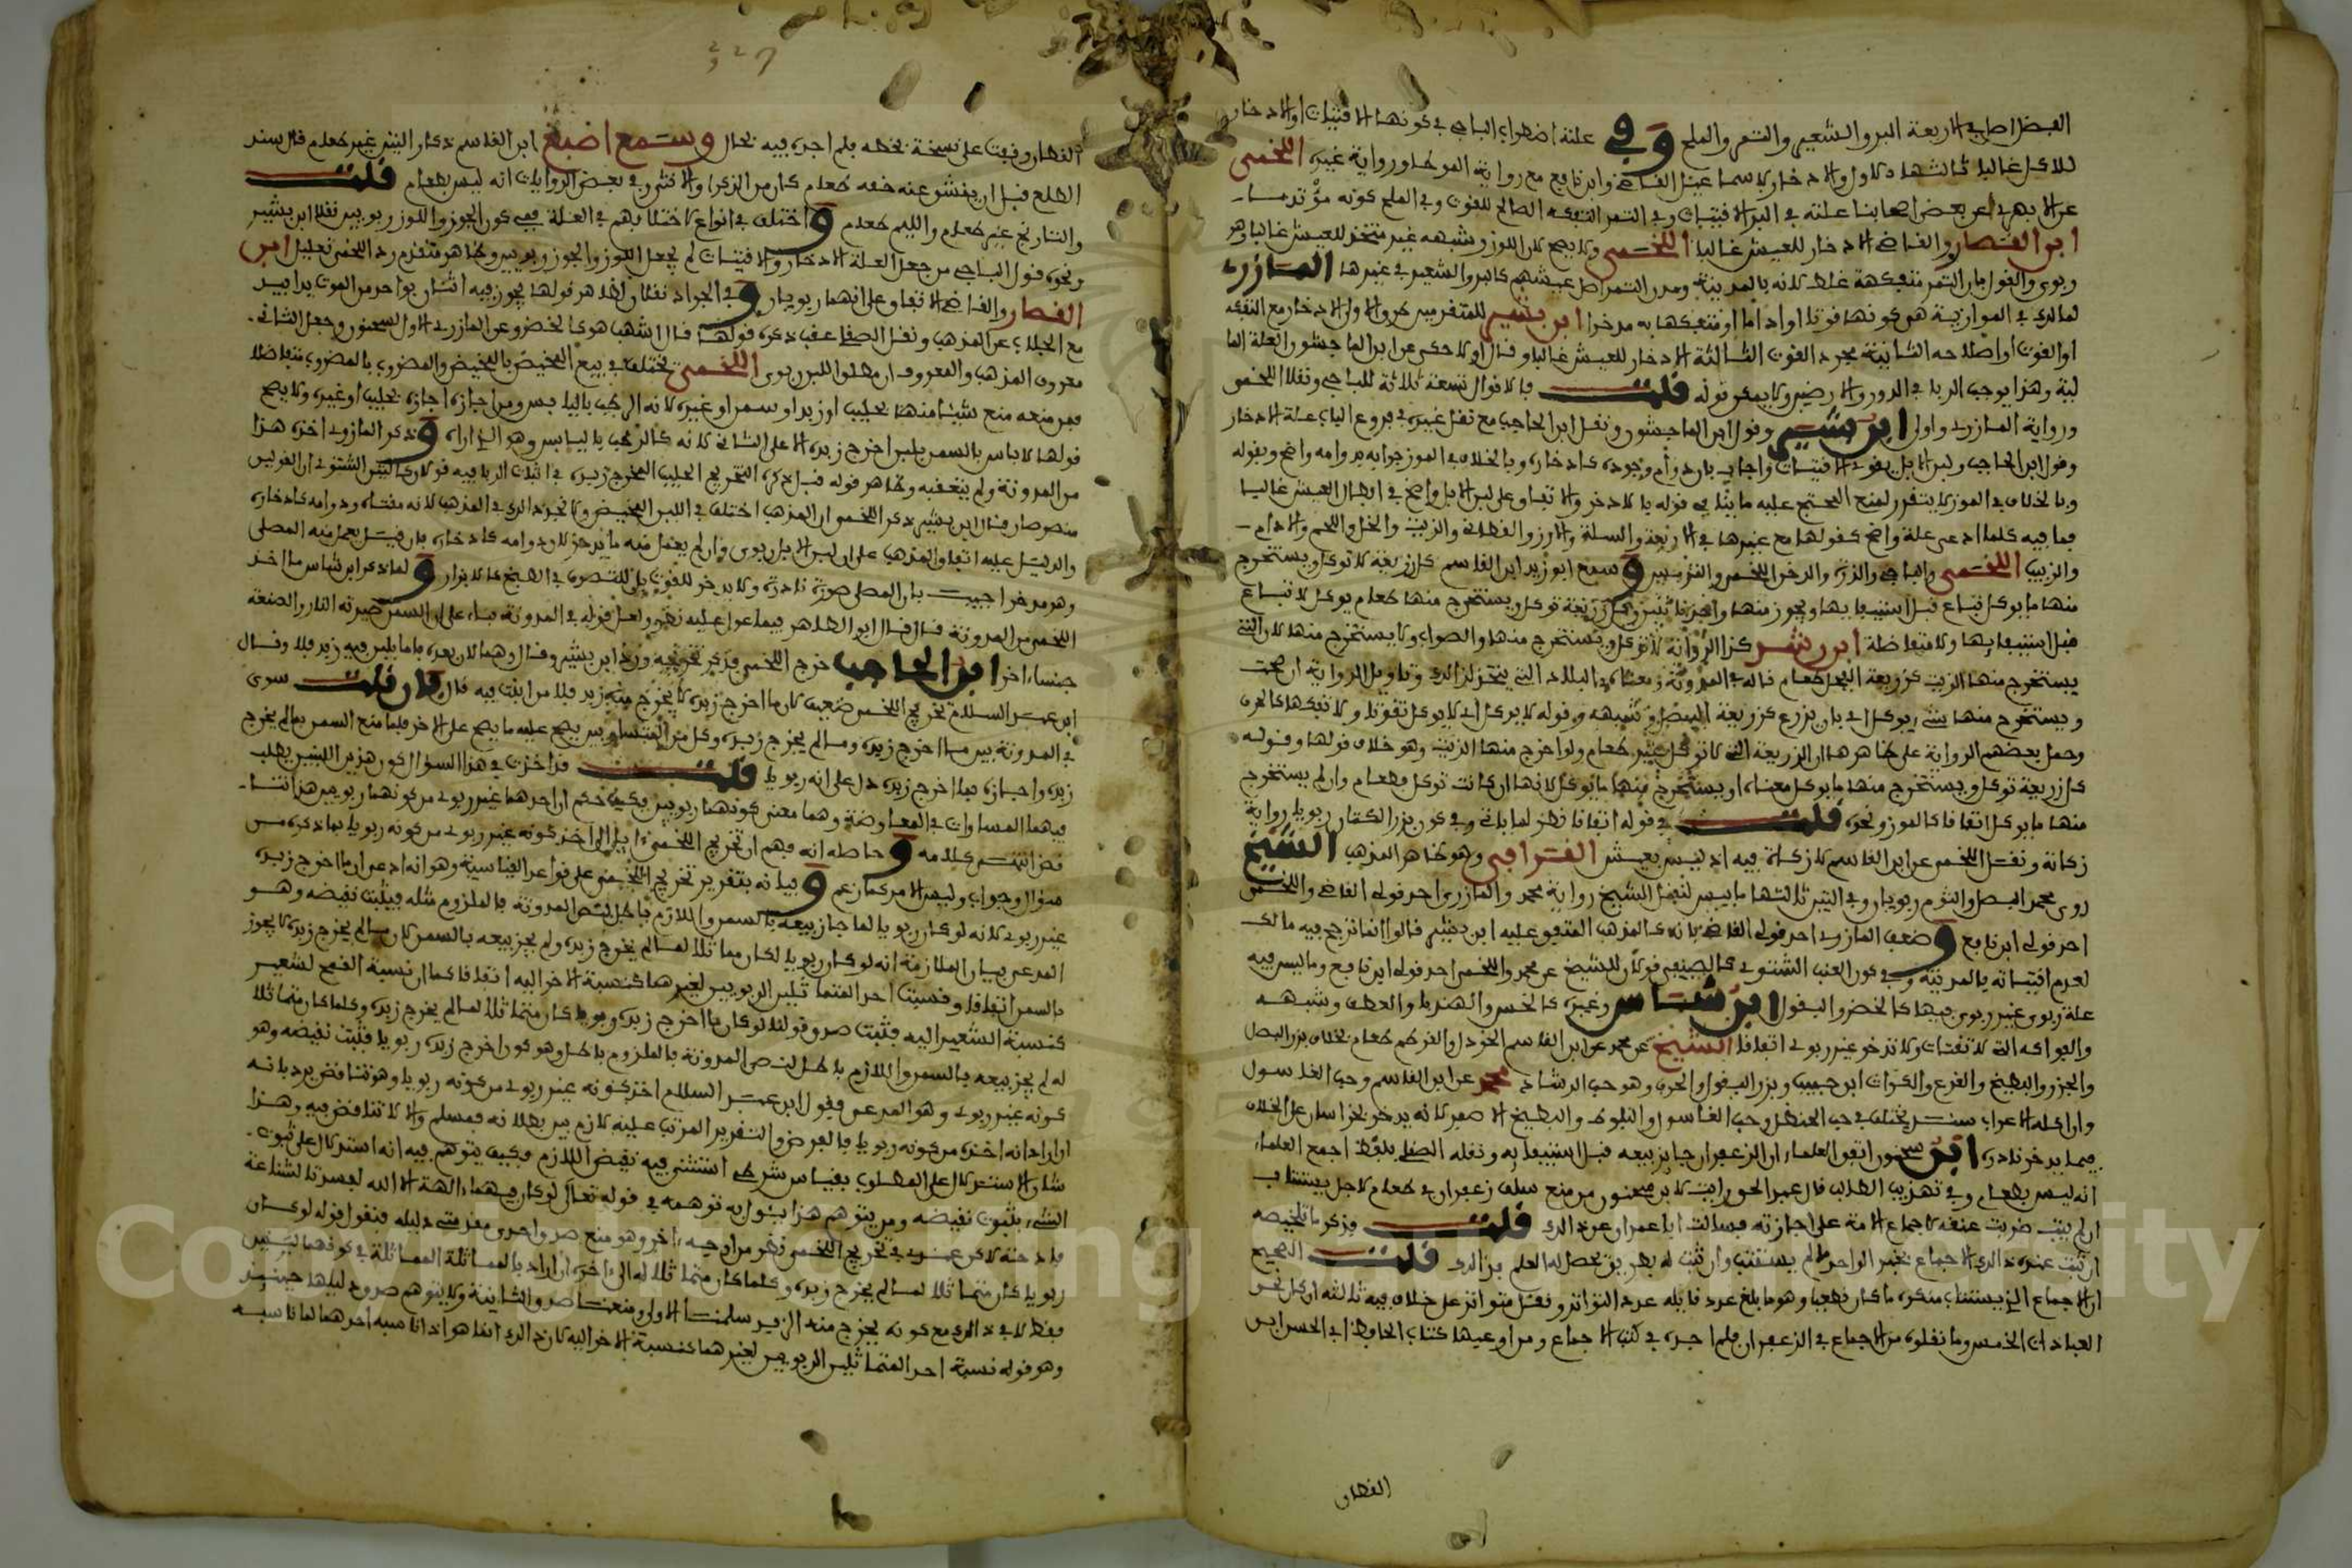 الفضل اصل في الاربعة البر والشعير والتمر والملح وفي علته اضطراب الباجي في كونها الاقتيات او الادخار
للاكل غالبا ثالثها الاول والادخار لاسماعيل القاضي وابن نافع مع رواية الموطا ورواية غيره اللخمي
عن الابهري عن بعض اصحابنا علته في البر الاقتيات وفي التمر التفكه الصالح للقوت وفي الملح كونه مؤتدما
ابن القصار والقاضي الادخار للعيش غالبا اللخمي ولا يصح لان اللوز وشبهه غير متخذ للعيش غالبا وهو
ربوي والقول بان التمر متفكهة غلط لانه بالمدينة ومدن التمر اصل عيشهم كالبر والشعير في غيرها المازري
لمالك في الموازية هو كونها قوتا او اداما او متفكها به مدخرا ابن بشير للمتقدمين كروا الاول الادخار مع التفكه
او القوت او اصلاحه الثانية مجرد القوت الثالثة الادخار للعيش غالبا وقال ولا حكى عن ابن الماجشون العلة الما
لية وهذا يوجب الربا في الدور والارضين ولا يمكن قوله قلت فالاقوال تسعة ثلاثة للباجي ونقلا اللخمي
ورواية المازري واولى ابن بشير وقول ابن الماجشون ونقل ابن الحاجب مع نقل غيره في فروع الباب علة الادخار
وقول ابن الحاجب ولبن الابل يقوي الاقتيات واجاب بان دوام وجوده كادخاره وبالخلاف في الموز جوابه بدوامه واضح وبقوله
وبالخلاف في الموز لا يتقرر لمنع المحتج عليه
فما فيه كلما ادعى علة واضح كقولها مع غيرها في الاربعة والسلت والارز والقطاني والزيت والخل واللحم والادام
والزبيب اللخمي والباجي والذرة والدخن اللخمي والترمس وسمع ابو زيد ابن القاسم كل زريعة لا توكل ويستخرج
منها ما يوكل تباع قبل استيفائها ويجوز منها واحد باثنين وكل زريعة توكل ويستخرج منها طعام يوكل لا تباع
قبل استيفائها ولا متفاضلة ابن رشد كذا الرواية لا توكل ويستخرج منها والصواب ولا يستخرج منها لان التي
يستخرج منها الزيت كزريعة الفجل طعام قاله في المدونة ومعناه في البلاد التي يتخذ لذلك وتاويل الرواية ان صحت
ويستخرج منها شيء يوكل اي بان يزرع كزريعة البصل وشبهه وقوله لا يوكل اي لا يوكل تقوتا ولا تفكها كالحرف
وحمل بعضهم الرواية على ظاهرها ان الزريعة التي لا توكل غير طعام ولو اخرج منها الزيت وهو خلاف قولها وقوله
كل زريعة توكل ويستخرج منها ما يوكل معناه او يستخرج منها ما يوكل لانها ان كانت توكل فطعام وان لم يستخرج
منها ما يوكل اتفاقا كالموز ونحوه قلت في قوله اتفاقا نظر لما ياتي وفي كون بزر الكتان ربويا رواية
زكاته ونقل اللخمي عن ابن القاسم لا زكاة فيه اذ ليس بعيش القرافي وهو ظاهر المذهب الشيخ
روى محمد البصل والثوم ربويان وفي التين ثالثها ما ييبس لنقل الشيخ رواية محمد والمازري احد قولي القاضي واللخمي
احد قولي ابن نافع وضعف المازري احد قولي القاضي بانه كالمذهب المتفق عليه ابن بشير قالوا انما ترجح فيه مالك
لعدم اقتياته بالمدينة وفي كون العنب الشتوي كالصيفي قولان للشيخ عن محمد واللخمي احد قولي ابن نافع وما ليس فيه
علة ربوي غير ربوي فيها كالخضر والبقول ابن شاس وغيره كالخس والهندبا والقطف وشبهه
والفواكه التي لا تقتات ولا تدخر غير ربوي اتفاقا الشيخ عن محمد عن ابن القاسم الخردل والقرطم طعام بخلاف بزر البصل
والجزر والبطيخ والقرع والكراث ابن حبيب وبزر البقول والحرف وهو حب الرشاد محمد عن ابن القاسم وحب الغاسول
وان اكله الاعراب سند يختلف في حب الحنظل وحب الغاسول والبلوط والبطيخ الاصفر لانه يدخر بخراسان على الخلاف
فيما يدخر نادرا ابن سحنون اتفق العلماء ان الزعفران جايز بيعه قبل استيفائه ونقله الصقلي بلفظ اجمع العلماء
انه ليس بطعام وفي تهذيب الطالب قال عبد الحق رايت لابن سحنون من منع سلف زعفران في طعام لاجل يستتاب
ان لم يتب ضربت عنقه لاجماع الامة على اجازته فسالت ابا عمران عن ذلك قلت فذكر ما تلخيصه
ان ثبت عنده ذلك الاجماع بخبر الواحد لم يستتب وان ثبت له بطريق يحصل له العلم فذلك قلت الصحيح
ان الاجماع الذي يستتاب منكره ما كان قطعيا وهو ما بلغ عدد قايله عدد التواتر ونقل متواترا على خلاف فيه ثالثه ان كان نحو
العبادات الخمس وما نقلوه من الاجماع في الزعفران فلم اجده في كتب الاجماع ومن اوعبها كتاب الحافظ ابي الحسن ابن
القطان
القطان وقفت على نسخة بخطه فلم اجده فيه بحال وسمع اصبغ ابن القاسم ذكار التين غير طعام قال سند
الطلع قبل ان ينشق عنه طعام وفي بعض الروايات انه ليس بطعام قلت
والنارنج غير طعام والليم طعام واختلف في انواع كاختلافهم في العلة ففي كون الجوز واللوز ربويين نقلا ابن بشير
ونحوه قول الباجي من جعل العلة الادخار والاقتيات لم يجعل اللوز والجوز ربويين وظاهر متقدم رد اللخمي تعليل ابن
القصار والقاضي الاتفاق على انهما ربويان وفي الجراد نقلان لظاهر قولها يجوز فيه اثنان بواحد من الحوت يدا بيد
مع الجلاب عن المذهب ونقل الصقلي عقب ذكره قولها قال اشهب هو كالخضر وعن المازري الاول لسحنون وجعل الثاني
معروف المذهب والمعروف ان مطلق اللبن ربوي اللخمي يختلف في بيع المخيض بالمخيض والمضروب بالمضروب متفاضلا
فمن منعه منع شيئا منها بحليب او زبد او سمن او غيره لانه الرطب باليابس ومن اجازه اجازه بحليب او غيره ولا يصح
قولها لا باس بالسمن بلبن اخرج زبده الا على الثاني لانه كالرطب باليابس وهو الذي اراه وذكر المازري اخذه هذا
من المدونة ولم يتعقبه وظاهر قوله قبل ذكره التخريج الحليب المخرج زبده في اثبات الربا فيه قولان كالتين الشتوي ان القولين
منصوصان وقال ابن بشير ذكر اللخمي ان المذهب اختلف في اللبن المخيض ولا نجد ذلك في المذهب لانه مقتات ودوامه كادخاره
والدليل عليه اتفاق المذهب على ان لبن الابل ربوي وان لم يعمل منه ما يدخر لان دوامه كادخاره فان قيل يعمل منه المصل
وهو مدخر اجيب بان المصل صورة نادرة ولا يدخر للقوت بل للتصرف في الطبخ كالابزار ولما ذكر ابن شاس ما اخذ
اللخمي من المدونة قال قال ابو الطاهر فيما عول عليه نظر ولعل قوله في المدونة بناء على ان السمن صيرته النار والصنعة
جنسا اخر ابن الحاجب خرج اللخمي فذكر تخريجه ورد ابن بشير وقال وهما لان بعده واما بلبن فيه زبد فلا وقال
ابن عبد السلام تخريج اللخمي ضعيف لان ما اخرج زبده لا يخرج منه زبد فلا مزابنة فيه قال فان قلت سوى
في المدونة بين ما اخرج زبده وما لم يخرج زبده وكل من المتساويين يصح عليه ما يصح على الاخر فلما منع السمن بما لم يخرج
زبده واجازه فيما اخرج زبده دل على انه ربويا قلت قد اخذت في هذا السؤال كون هذين اللبنين يطلب
فيهما المساوات في المعاوضة وهما معنى كونهما ربويين فكيف حكم ان احدهما غير ربوي من كونهما ربويين هذا تنا
قض انتهى كلامه وحاصله انه فهم ان تخريج اللخمي ايل الى اخذ كونه غير ربوي من كونه ربويا بما ذكره من
سؤال وجواب وليس الامر كما زعم وبيانه بتقرير تخريج اللخمي على قواعد القياسية وهو انه ادعى ان ما اخرج زبده
غير ربوي لانه لو كان ربويا لما جاز بيعه بالسمن واللازم باطل لنص المدونة فالملزوم مثله فيثبت نقيضه وهو
المدعى بيان الملازمة انه لو كان ربويا لكان مماثلا لما لم يخرج زبده ولم يجز بيعه بالسمن لان ما لم يخرج زبده لا يجوز
بالسمن اتفاقا ونسبة احد المتماثلين الربويين لغيرهما كنسبة الاخر اليه اتفاقا كما ان نسبة القمح لشعير
كنسبة الشعير اليه فثبت صدق قولنا لو كان ما اخرج زبده ربويا كان متماثلا لما لم يخرج زبده وكلما كان متماثلا
له لم يجز بيعه بالسمن واللازم باطل لنص المدونة فالملزوم باطل وهو كون ما اخرج زبده ربويا فثبت نقيضه وهو
كونه غير ربوي وهو المدعى وقول ابن عبد السلام اخذ كونه غير ربوي من كونه ربويا وهو تناقض يرد بانه
ان اراد انه اخذه من كونه ربويا بالفرض والتقرير المرتب عليه لازم بين بطلانه فمسلم والا لا تناقض فيه وهذا
شان الاستدلال على المطلوب بقياس شرطي استثني فيه نقيض اللازم فكيف يتوهم فيه انه استدلال على ثبوت
الشيء بثبوت نقيضه ومن يتوهم هذا يئول به توهمه في قوله تعالى لو كان فيهما الهة الا الله لفسدتا لشناعة
فادحة لاكن عندي في تخريج اللخمي نظر من وجه اخر وهو منع صدق احدى مقدمتي دليله فنقول قوله لو كان
ربويا كان متماثلا لما لم يخرج زبده وكلما كان متماثلا له الى اخره ان اراد بالمماثلة المماثلة في كونهما لبنين
فقط لا في ذلك مع كونه يخرج منه الزبد سلمنا الاولى ومنعنا صدق الثانية ولا يتوهم صدق دليلها حينئذ
وهو قوله نسبة احد المتماثلين الربويين لغيرهما كنسبة الاخر اليه لان ذلك انما هو اذا ناسبه احدهما لما ناسبه